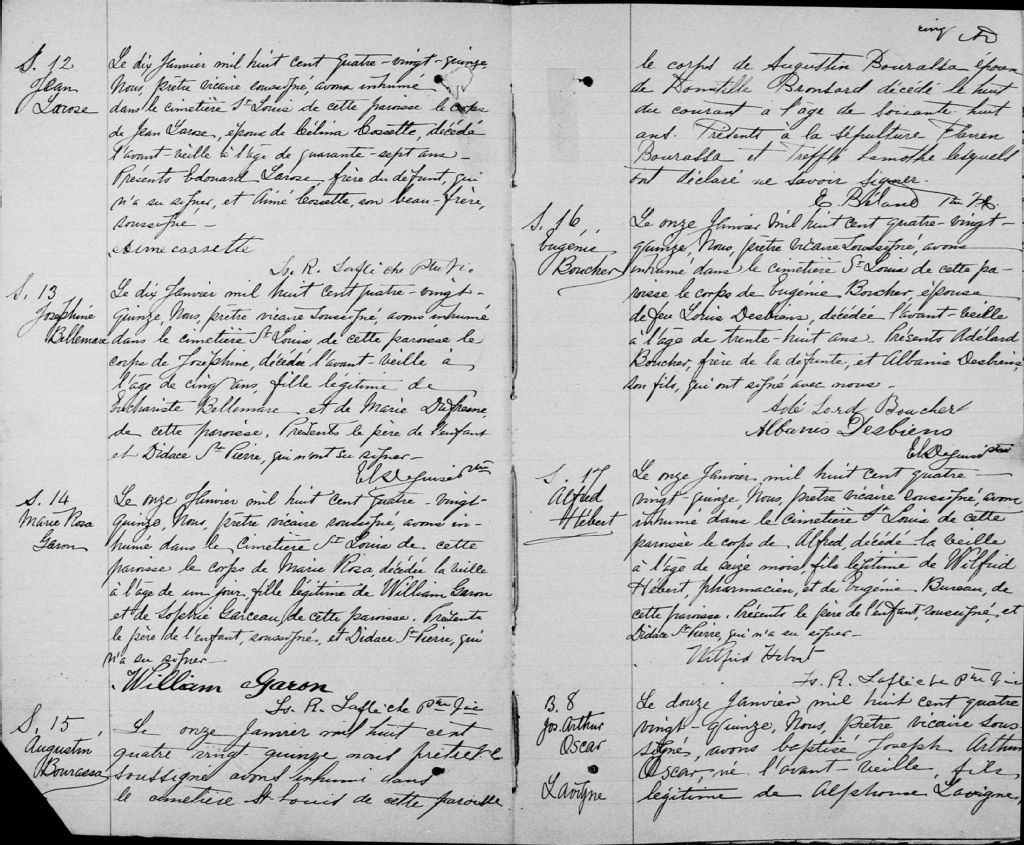 S. 12
Jean
Larose
Le dix Janvier mil huit cent quatre-vingt-quinze,
Nous, prêtre vicaire soussigné, avons inhumé
dans le cimetière St Louis de cette paroisse le corps
de Jean Larose, époux de Célina Cossette, décédé
l'avant-veille à l'âge de quarante-sept ans —
Présents Edouard Larose, frère du défunt, qui
n'a su signer, et Aimé Cossette, son beau-frère,
soussigné —
Aimé cossette
Ls. R. Laflèche Ptre Vic.
S. 13
Joséphine
Bellemare
Le dix Janvier mil huit cent quatre-vingt-
quinze, Nous, prêtre vicaire soussigné, avons inhumé
dans le cimetière St Louis de cette paroisse le
corps de Joséphine, décédée l'avant-veille à
l'âge de cinq ans, fille légitime de
Euchariste Bellemare et de Marie Dufresne,
de cette paroisse. Présents le père de l'enfant
et Didace St Pierre, qui n'ont su signer —
S. 14
Marie Rosa
Garon
Le onze Janvier mil huit cent quatre-vingt-
quinze, Nous, prêtre vicaire soussigné, avons in-
humé dans le cimetière St Louis de cette
paroisse le corps de Marie Rosa, décédée la veille
à l'âge de un jour, fille légitime de William Garon
et de Sophie Garceau, de cette paroisse. Présents
le père de l'enfant, soussigné, et Didace St Pierre, qui
n'a su signer —
William Garon
Ls. R. Laflèche Ptre Vic
S. 15
Augustin
Bourassa
Le onze Janvier mil huit cent
quatre vingt quinze nous prêtre
soussigné avons inhumé dans
le cimetière St Louis de cette paroisse
cinq
le corps de Augustin Bourassa époux
de Domitille Brousard décédé le huit
du courant à l'âge de soixante huit
ans. Présents à la sépulture
Bourassa et Trefflé Lamothe lesquels
ont déclaré ne savoir signer.
S. 16
Eugénie
Boucher
Le onze Janvier mil huit cent quatre-vingt-
quinze, Nous, prêtre vicaire soussigné, avons
inhumé dans le cimetière St Louis de cette pa-
roisse le corps de Eugénie Boucher, épouse
de feu Louis Desbiens, décédée l'avant-veille
à l'âge de trente-huit ans. Présents Adélard
Boucher, frère de la défunte, et Albanis Desbiens,
son fils, qui ont signé avec nous —
Adé Lord Boucher
Albanis Desbiens
S. 17
Alfred
Hébert
Le onze Janvier mil huit cent quatre
vingt-quinze, Nous, prêtre vicaire soussigné, avons
inhumé dans le cimetière St Louis de cette
paroisse le corps de Alfred, décédé la veille
à l'âge de seize mois, fils légitime de Wilfrid
Hébert, pharmacien, et de Eugénie Bureau, de
cette paroisse. Présents le père de l'enfant, soussigné, et
Didace St Pierre, qui n'a su signer —
Wilfrid Hébert
Ls. R. Laflèche Ptre Vic
B. 8
Jos. Arthur
Oscar
Lavigne
Le douze Janvier mil huit cent quatre
vingt-quinze, Nous, prêtre vicaire sous-
signé, avons baptisé Joseph Arthur
Oscar, né l'avant-veille, fils
légitime de Alphonse Lavigne,